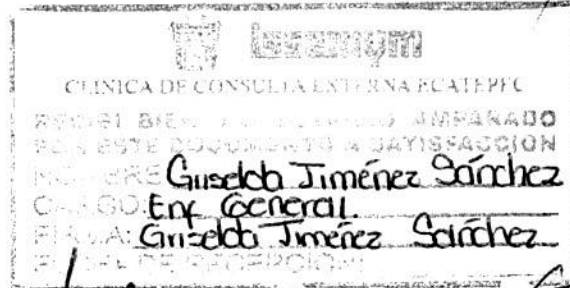 issemym
CLINICA DE CONSULTA EXTERNA ECATEPEC
RECIBI BIEN AMPARADO
POR ESTE DOCUMENTO A SATISFACCION
NOMBRE Griselda Jiménez Sánchez
CARGO: Enf General.
FIRMA: Griselda Jiménez Sánchez
FECHA DE RECEPCION: